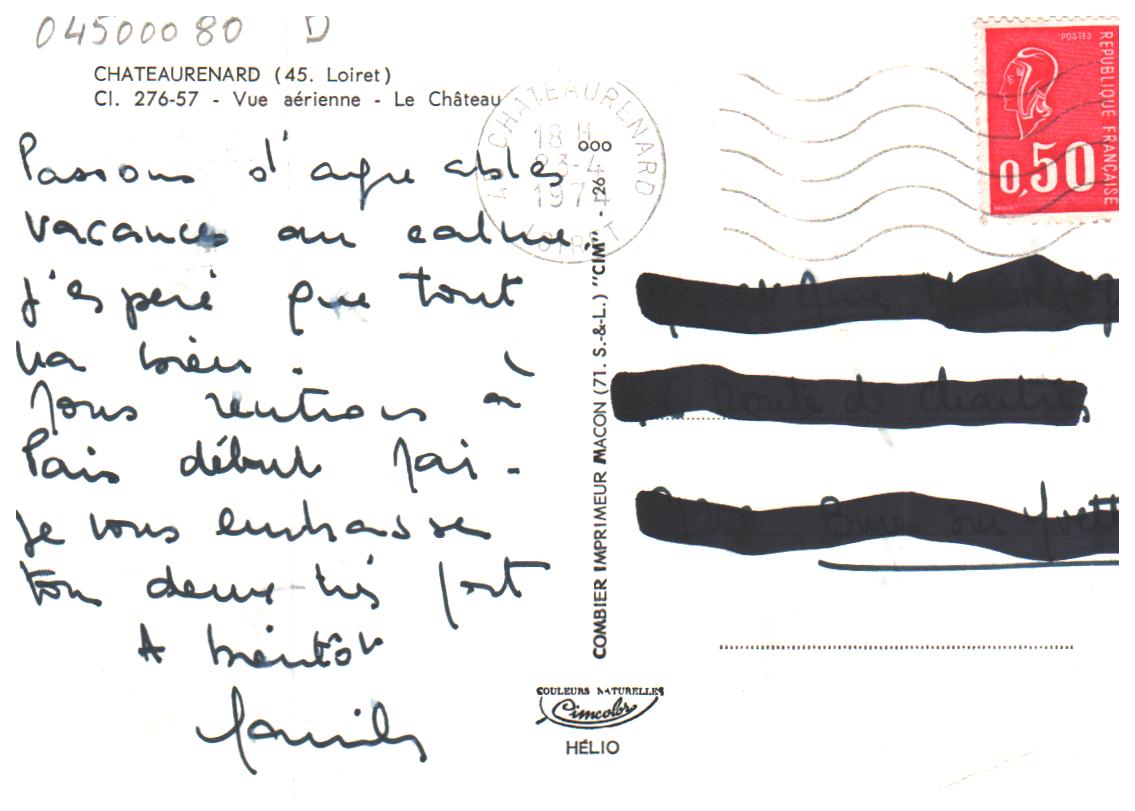 04500080 D
CHATEAURENARD (45. Loiret)
Cl. 276-57 - Vue aérienne - Le Château
Passons d'agréables
vacances au calme.
J'espère que tout
va bien.
Nous rentrons à
Paris début Mai.
Je vous embrasse
tous deux très fort
A bientôt
CHATEAURENARD
18 H
23-4
1974
LOIRET
POSTES
REPUBLIQUE FRANÇAISE
0,50
COMBIER IMPRIMEUR MACON (71. S.-&-L.) "CIM" - 126
Route de Chartres
Bures sur Yvette
COULEURS NATURELLES
Cimcolor
HÉLIO